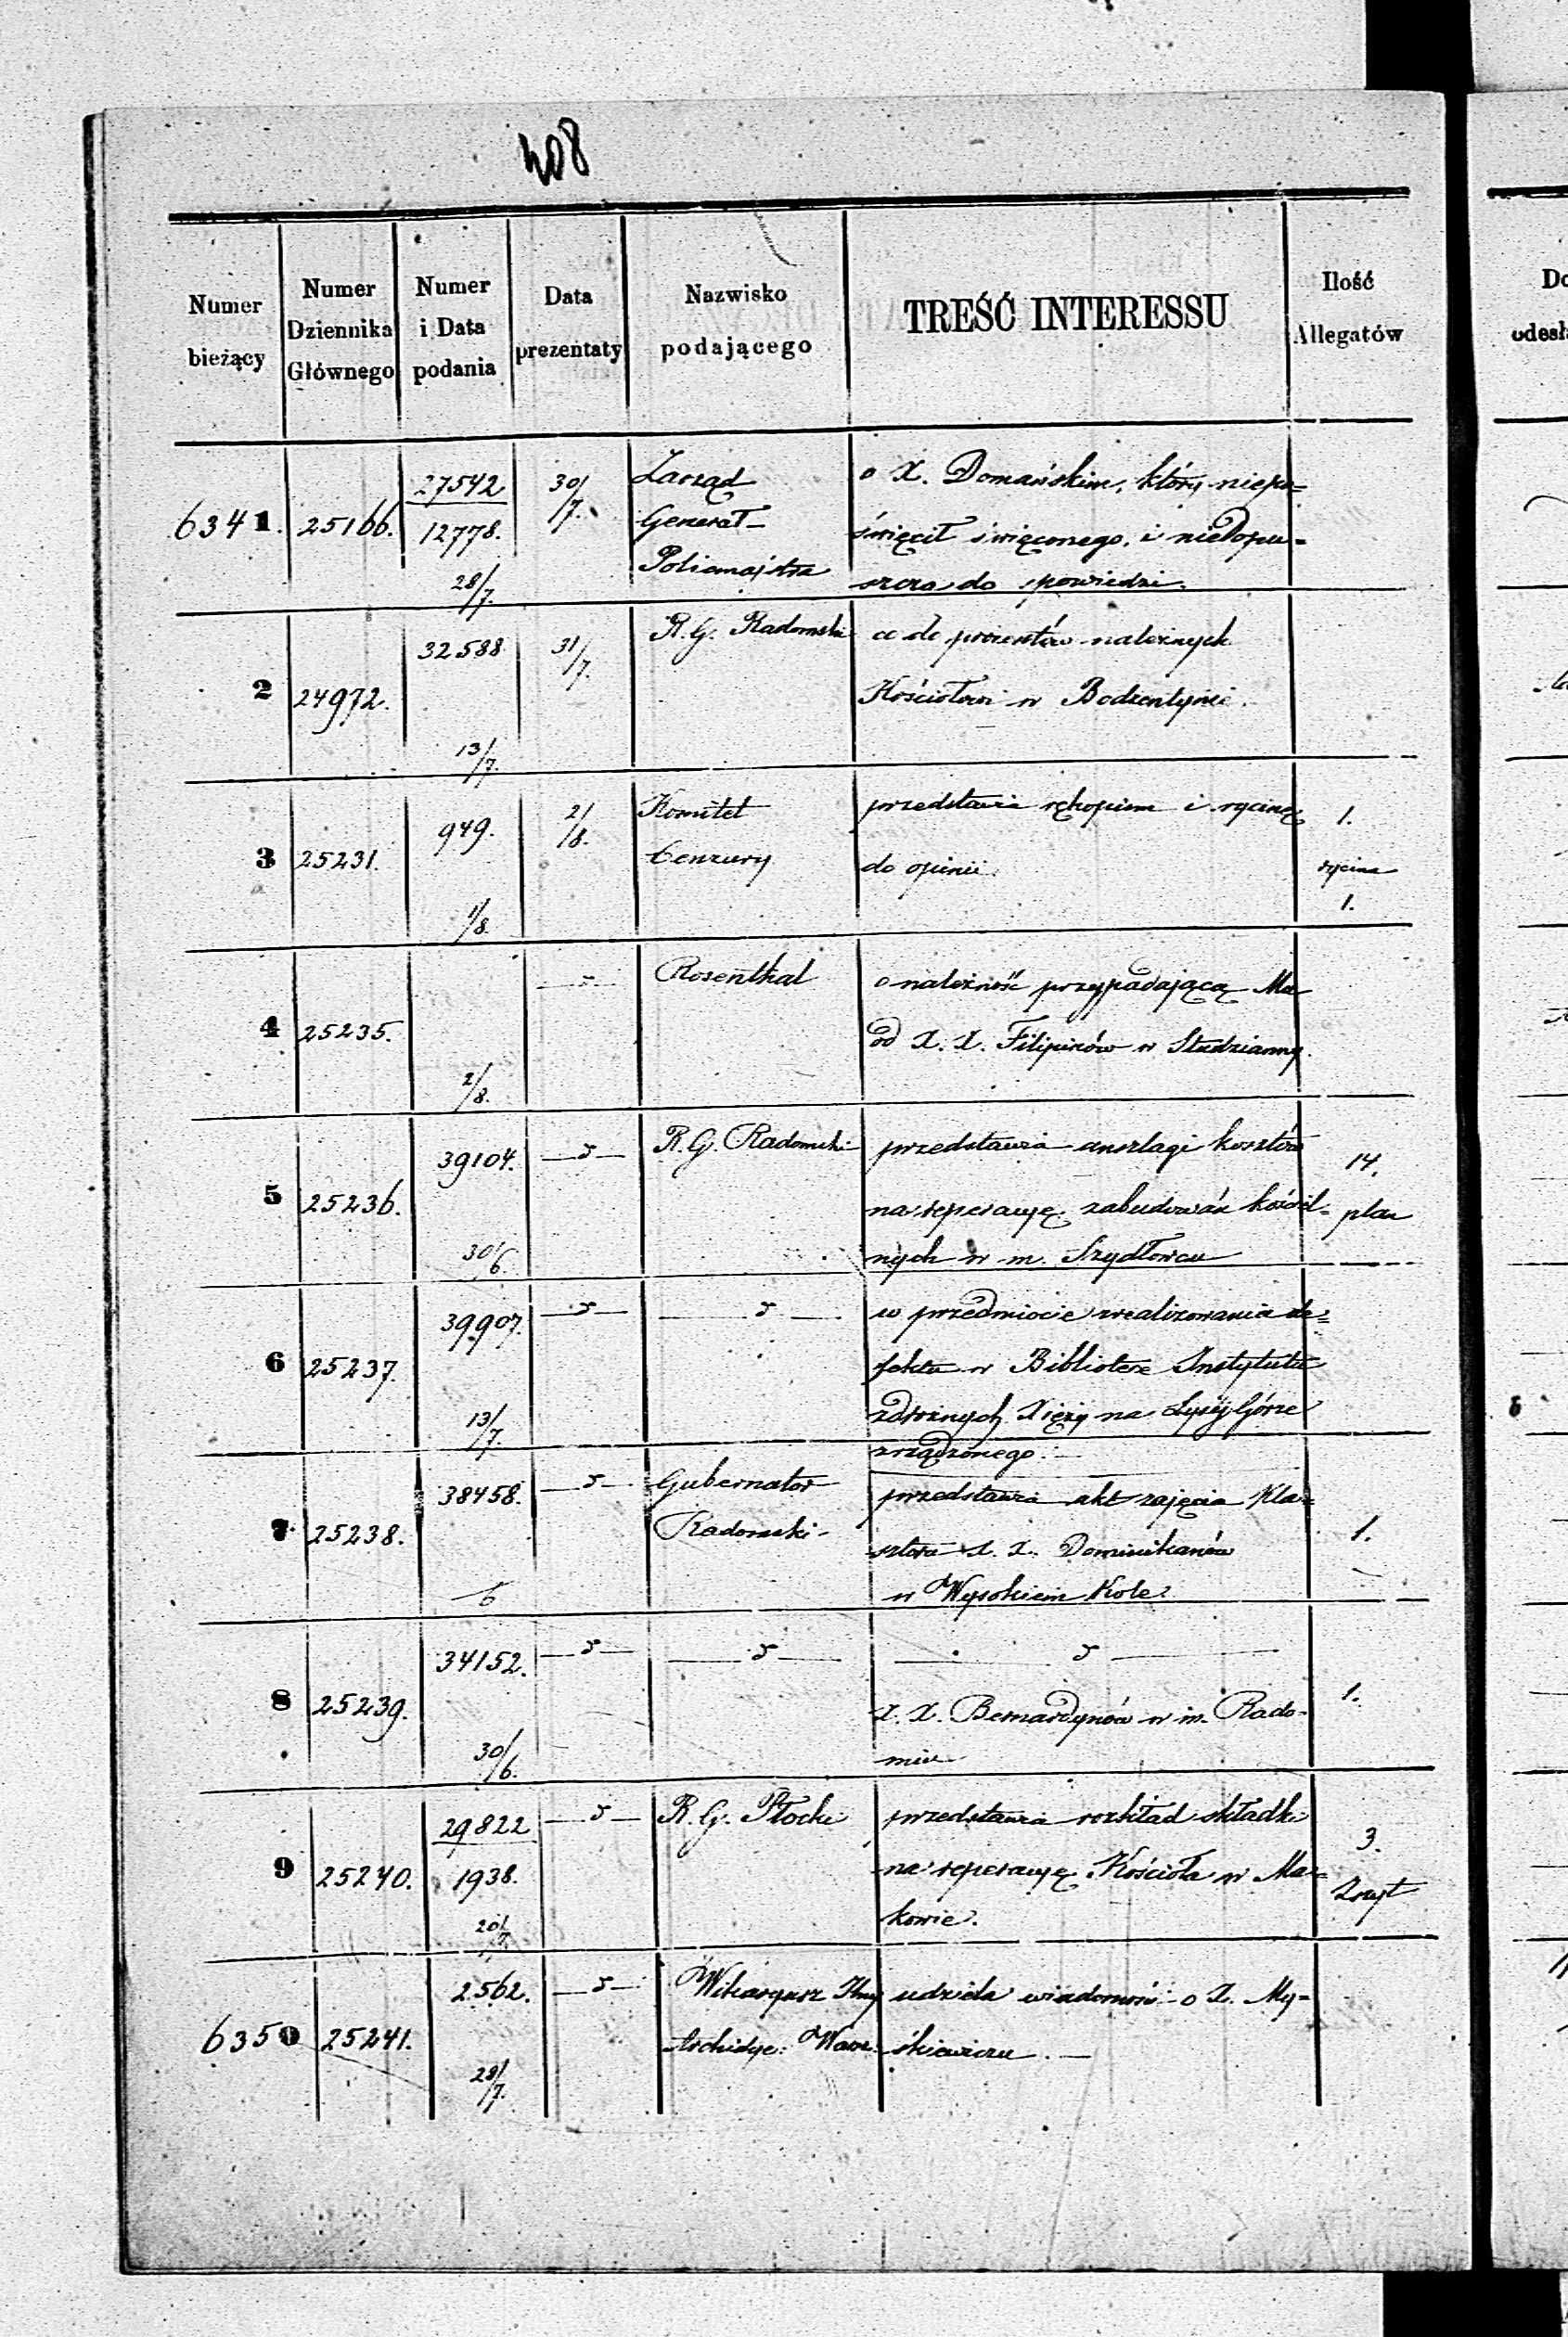 408
Numer bieżący
Numer Dziennika Głównego
Numer i Data podania
Data prezentaty
Nazwisko podającego
TREŚĆ INTERESSU
Ilość Allegatów
6341. 25166. 27542 12778. 28/7. 30/7.
Zarząd
Generał-
Policmajstra
o X. Domańskim, który niepo=
święcił święconego, i niedopu=
szcza do spowiedzi.
2 24972. 32588 13/7. 31/7.
R. G. Radomski
co do procentów należnych
Kościołowi w Bodzentynie.
3 25231. 949. 1/8. 2/8.
Komitet
Cenzury
przedstawia rękopism i rycinę
do opinii.
1.
rycina
1.
4 25235. 2/8. —„—
Rosenthal
o należność przypadającą Mu
od X. X. Filipinów w Studzianny.
5 25236. 39104. 30/6. —„—
R. G. Radomski
przedstawia anszlagi kosztów
na reperacyę zabudowań kościel=
nych w m. Szydłowcu
14.
plan
6 25237. 39907. 13/7. —„— —„—
w przedmiocie zrealizowania de=
fektu w Bibliotece Instytutu
zdrożnych Xięży na Łysej Górze
zrządzonego.—
7 25238. 38458. 6 —„—
Gubernator
Radomski-
przedstawia akt zajęcia Kla=
sztoru X. X. Dominikanów
w Wysokiem Kole.
1.
8 25239. 34152. 30/6. —„— —„— —„—
X. X. Bernardynów w m. Rado-
miu
1.
9 25240. 29822 1938. 20/7. —„—
R. G. Płocki
przedstawia rozkład składki
na reperacyę Kościoła w Ma=
kowie.
3.
Zeszyt
6350 25241. 2562. 28/7. —„—
Wikaryusz
Archidye: Warsz:
udziela wiadomość o X. My=
śkiewiczu.—
Do
odesł